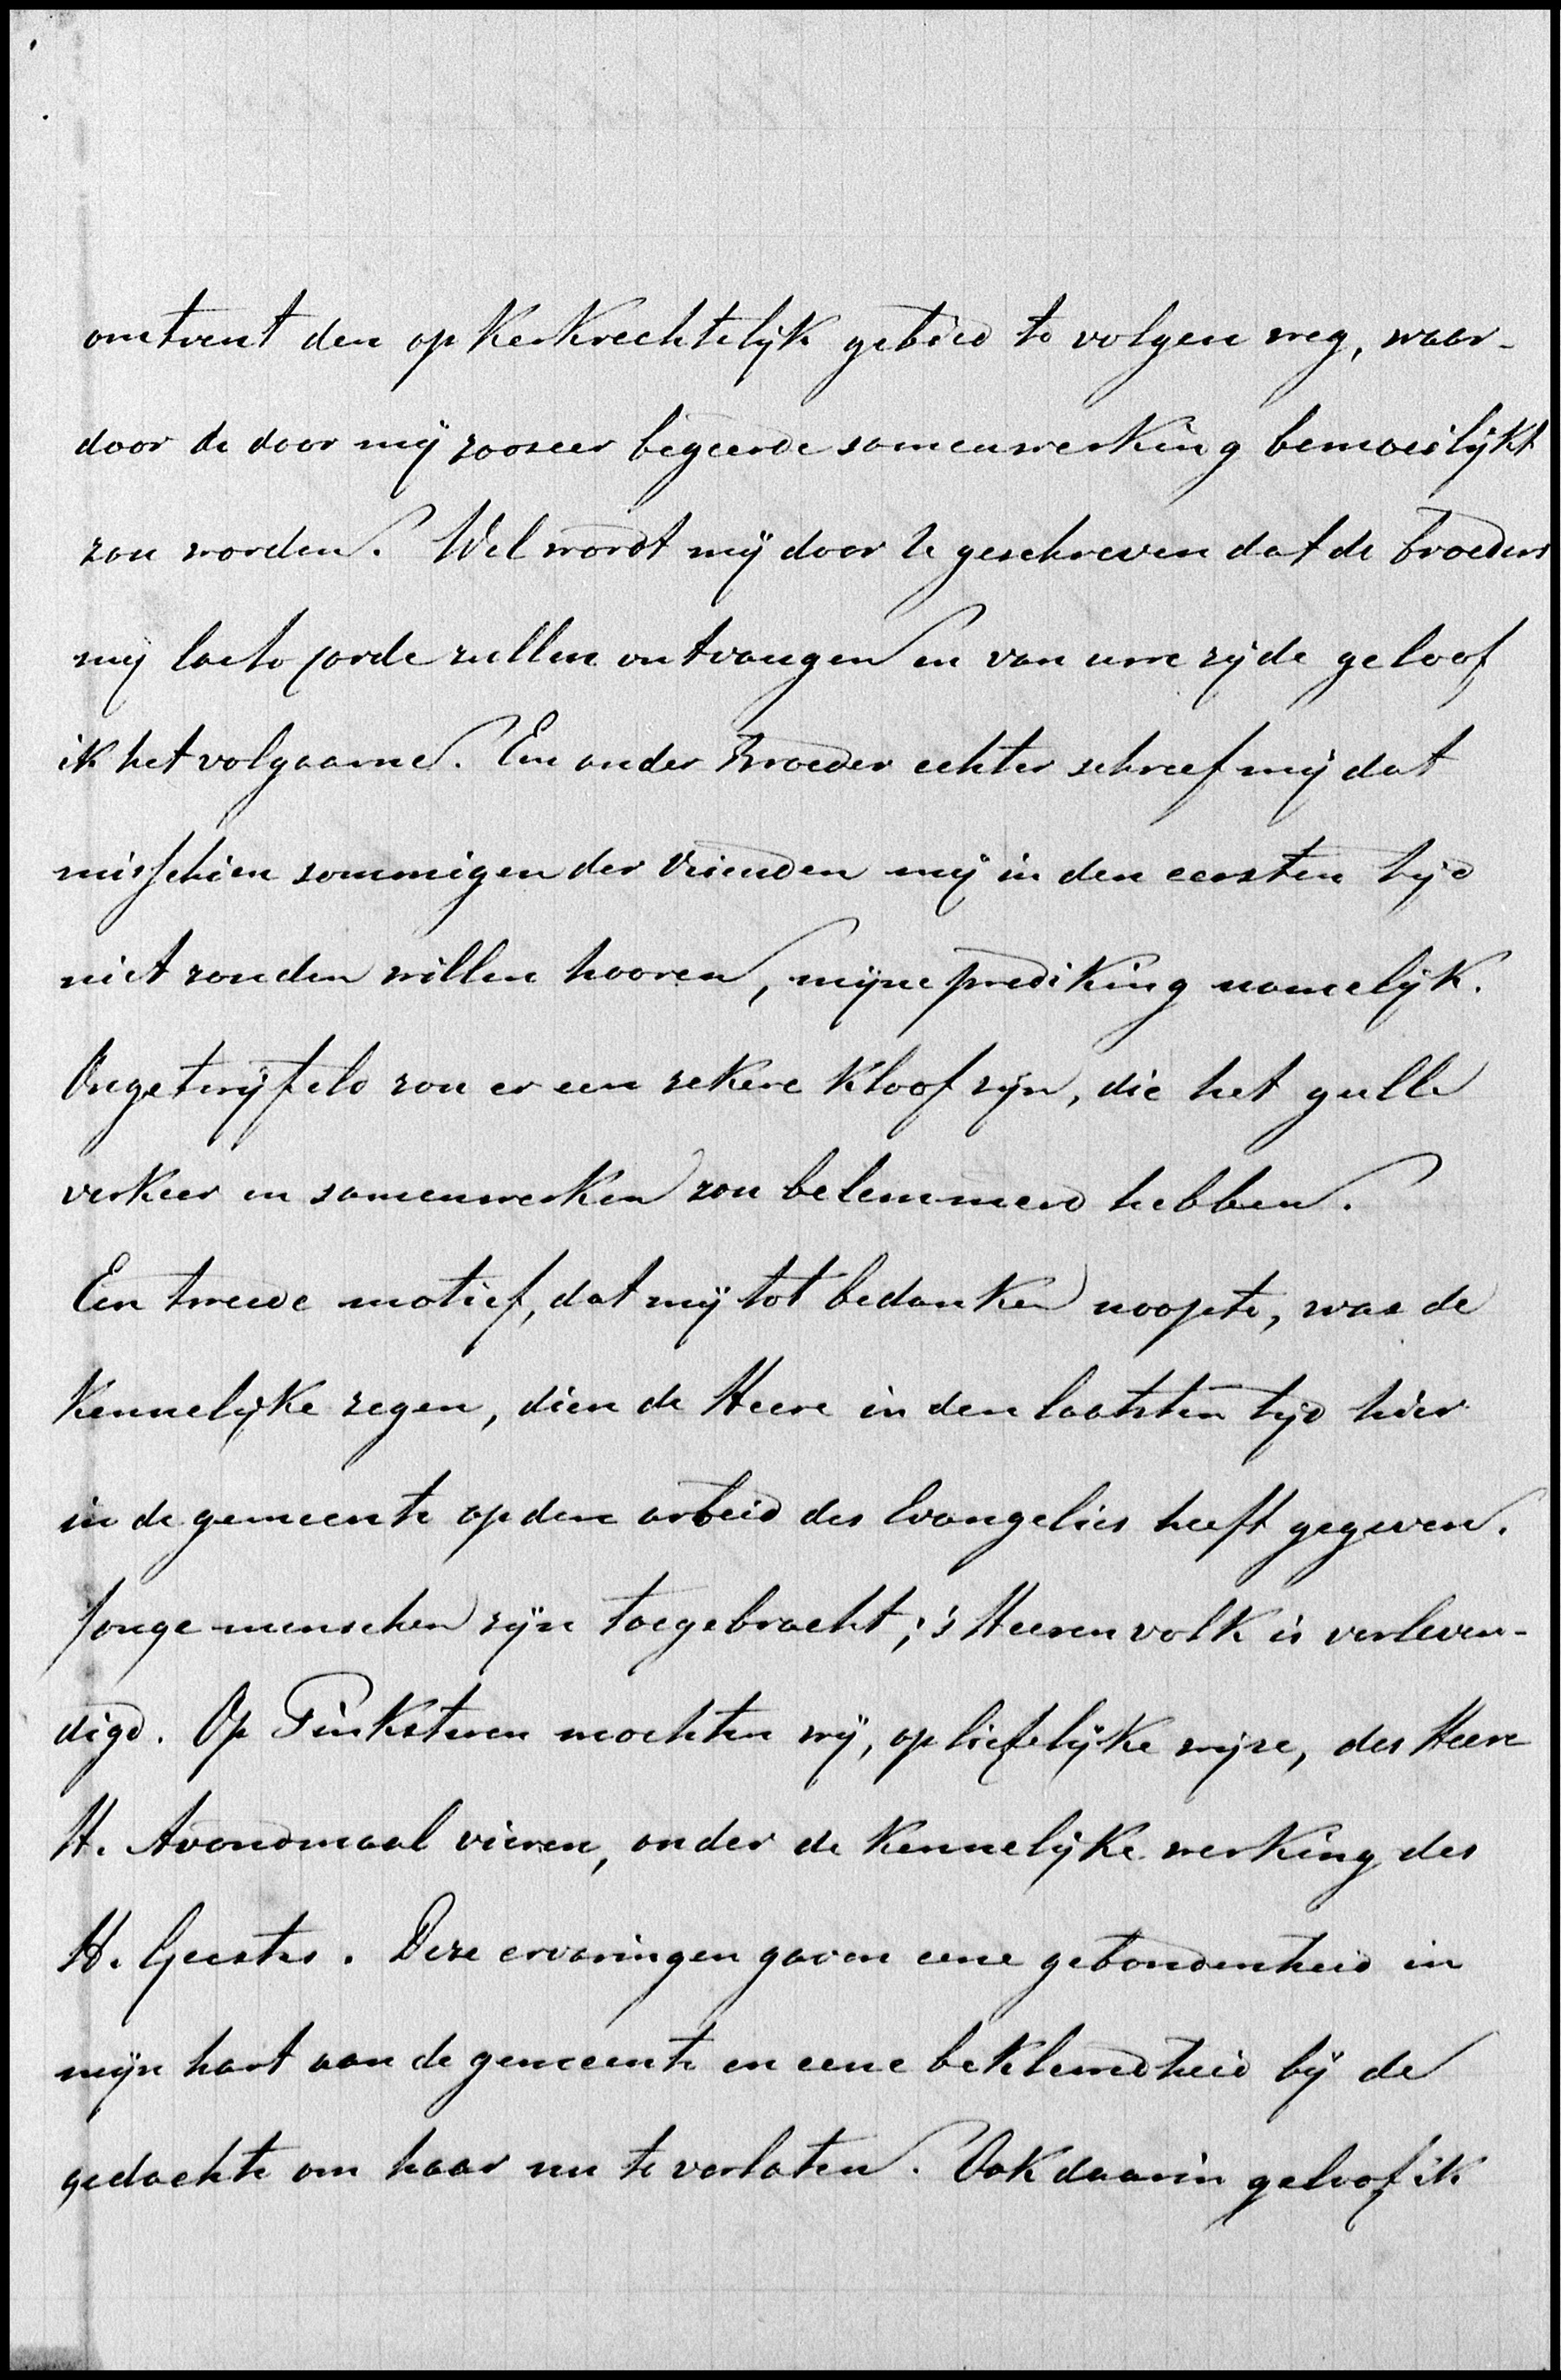 omtrent den op Kerkrechtelijk gebied te volgen weg, waar-
door de door mij zoozeer begeerde samenwerking bemoeilijkt
zou worden. Wel wordt mij door U geschreven dat de broeders
mij laeto corde zullen ontvangen en van uwe zijde geloof
ik het volgaarne. Een ander broeder echter schreef mij dat
misschien sommigen der vrienden mij in den eersten tijd
niet zouden willen hooren, mijne prediking namelijk.
Ongetwijfeld zou er een zekere Kloof zijn, die het gulle
verkeer en samenwerken zou belemmerd hebben.
Een tweede motief, dat mij tot bedanken noopte, was de
Kennelijke zegen, dien de Heere in den laatsten tijd hier
in de gemeente op den arbeid des Evangelies heeft gegeven.
Jonge menschen zijn toegebracht; 's Heeren volk is verleven-
digd. Op Pinksteren mochten wij, op liefelijke wijze, des Heere
H. Avondmaal vieren, onder de Kennelijke werking des
H. Geestes. Deze ervaringen gaven eene gebondenheid in
mijn hart aan de gemeente en eene beklemdheid bij de
gedachte om haar nu te verlaten. Ook daarin geloof ik